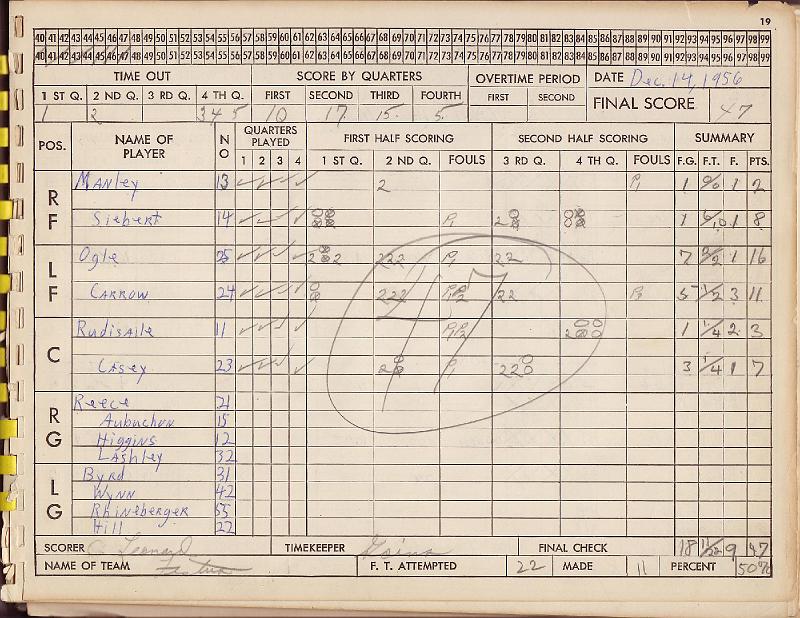 19
40 41 42 43 44 45 46 47 48 49 50 51 52 53 54 55 56 57 58 59 60 61 62 63 64 65 66 67 68 69 70 71 72 73 74 75 76 77 78 79 80 81 82 83 84 85 86 87 88 89 90 91 92 93 94 95 96 97 98 99
40 41 42 43 44 45 46 47 48 49 50 51 52 53 54 55 56 57 58 59 60 61 62 63 64 65 66 67 68 69 70 71 72 73 74 75 76 77 78 79 80 81 82 83 84 85 86 87 88 89 90 91 92 93 94 95 96 97 98 99
TIME OUT SCORE BY QUARTERS OVERTIME PERIOD DATE Dec. 14, 1956
1 ST Q. 2 ND Q. 3 RD Q. 4 TH Q. FIRST SECOND THIRD FOURTH FIRST SECOND FINAL SCORE 47
1 2 3 4 5 10 17 15 5
POS. NAME OF PLAYER NO QUARTERS PLAYED FIRST HALF SCORING SECOND HALF SCORING SUMMARY
1 2 3 4 1 ST Q. 2 ND Q. FOULS 3 RD Q. 4 TH Q. FOULS F.G. F.T. F. PTS.
RF Manley 13 2 P1 1 0/0 1 2
Siebert 14 P1 2 1 6/10 1 8
LF Ogle 25 222 P1 22 7 2/2 1 16
Carrow 24 222 P1P2 22 P3 5 1/2 3 11
C Rudisaile 11 P1P2 2 1 1/4 2 3
Casey 23 2 P1 22 3 1/4 1 7
47
RG Reece 21
Aubuchon 15
Higgins 12
Lashley 32
LG Byrd 31
Wynn 42
Rhineberger 55
Hill 22
SCORER C Leonard TIMEKEEPER FINAL CHECK 18 11/22 9 47
NAME OF TEAM Festus F. T. ATTEMPTED 22 MADE 11 PERCENT 50%